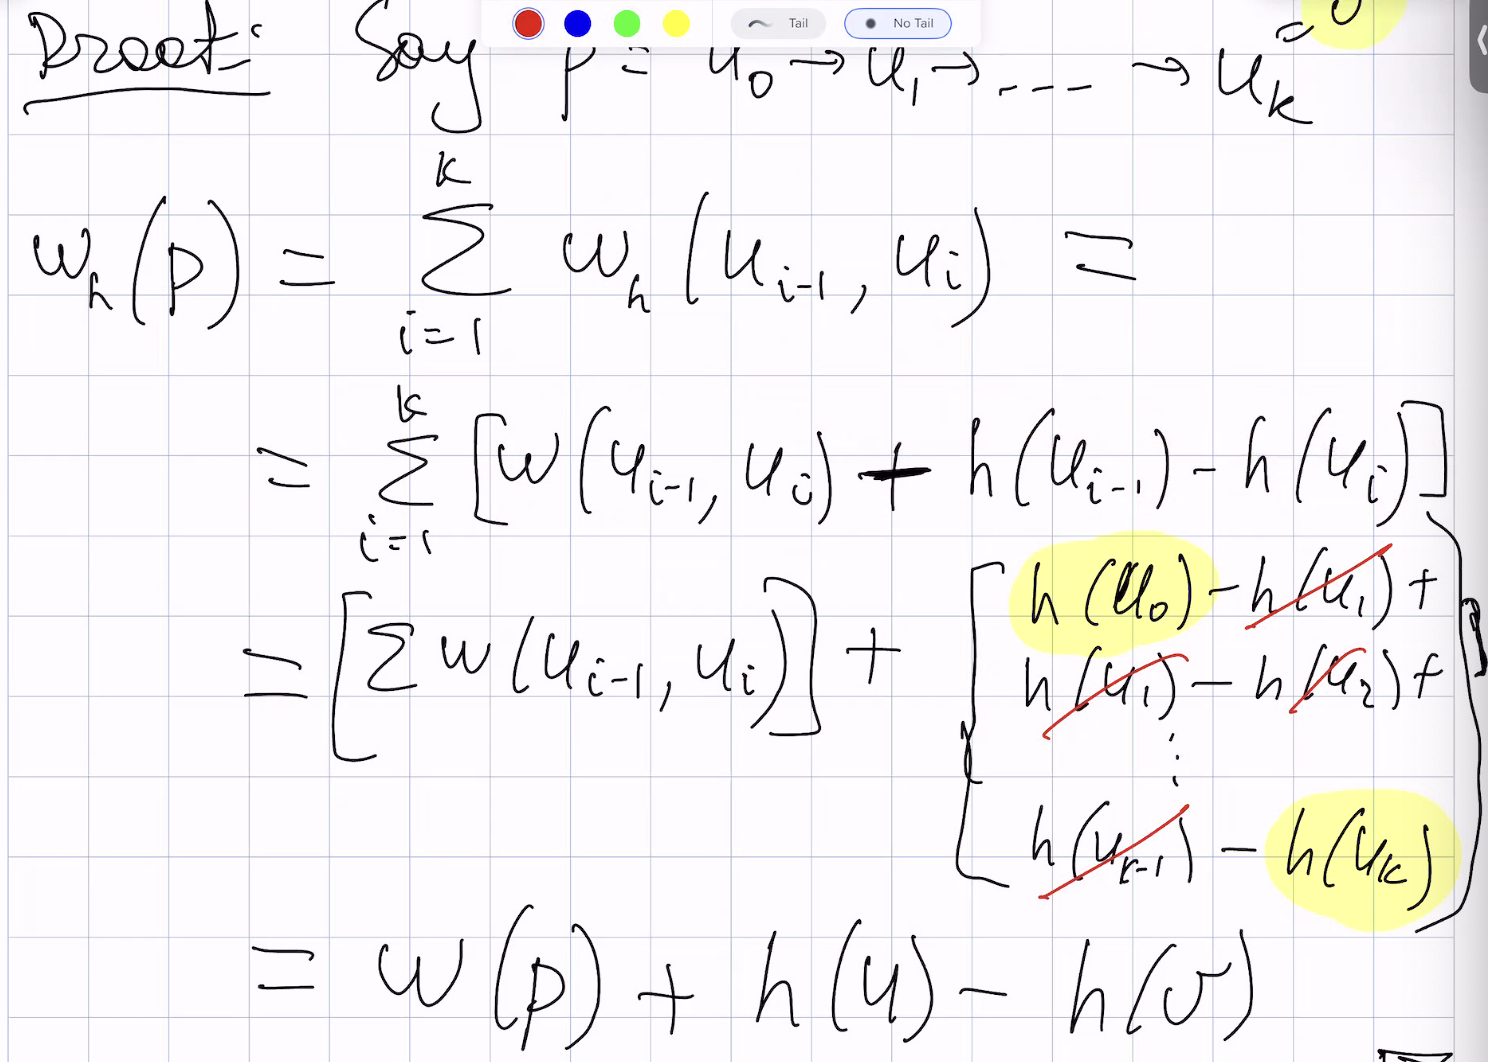 Tail No Tail
Proof: Say p = u₀ → u₁ → ... → u_k = v
w_h(p) = ∑_{i=1}^{k} w_h(u_{i-1}, u_i) =
= ∑_{i=1}^{k} [w(u_{i-1}, u_i) + h(u_{i-1}) - h(u_i)]
= [∑ w(u_{i-1}, u_i)] + [h(u₀) - h(u₁) +
h(u₁) - h(u₂) +
⋮
h(u_{k-1}) - h(u_k)]
= w(p) + h(u) - h(v)